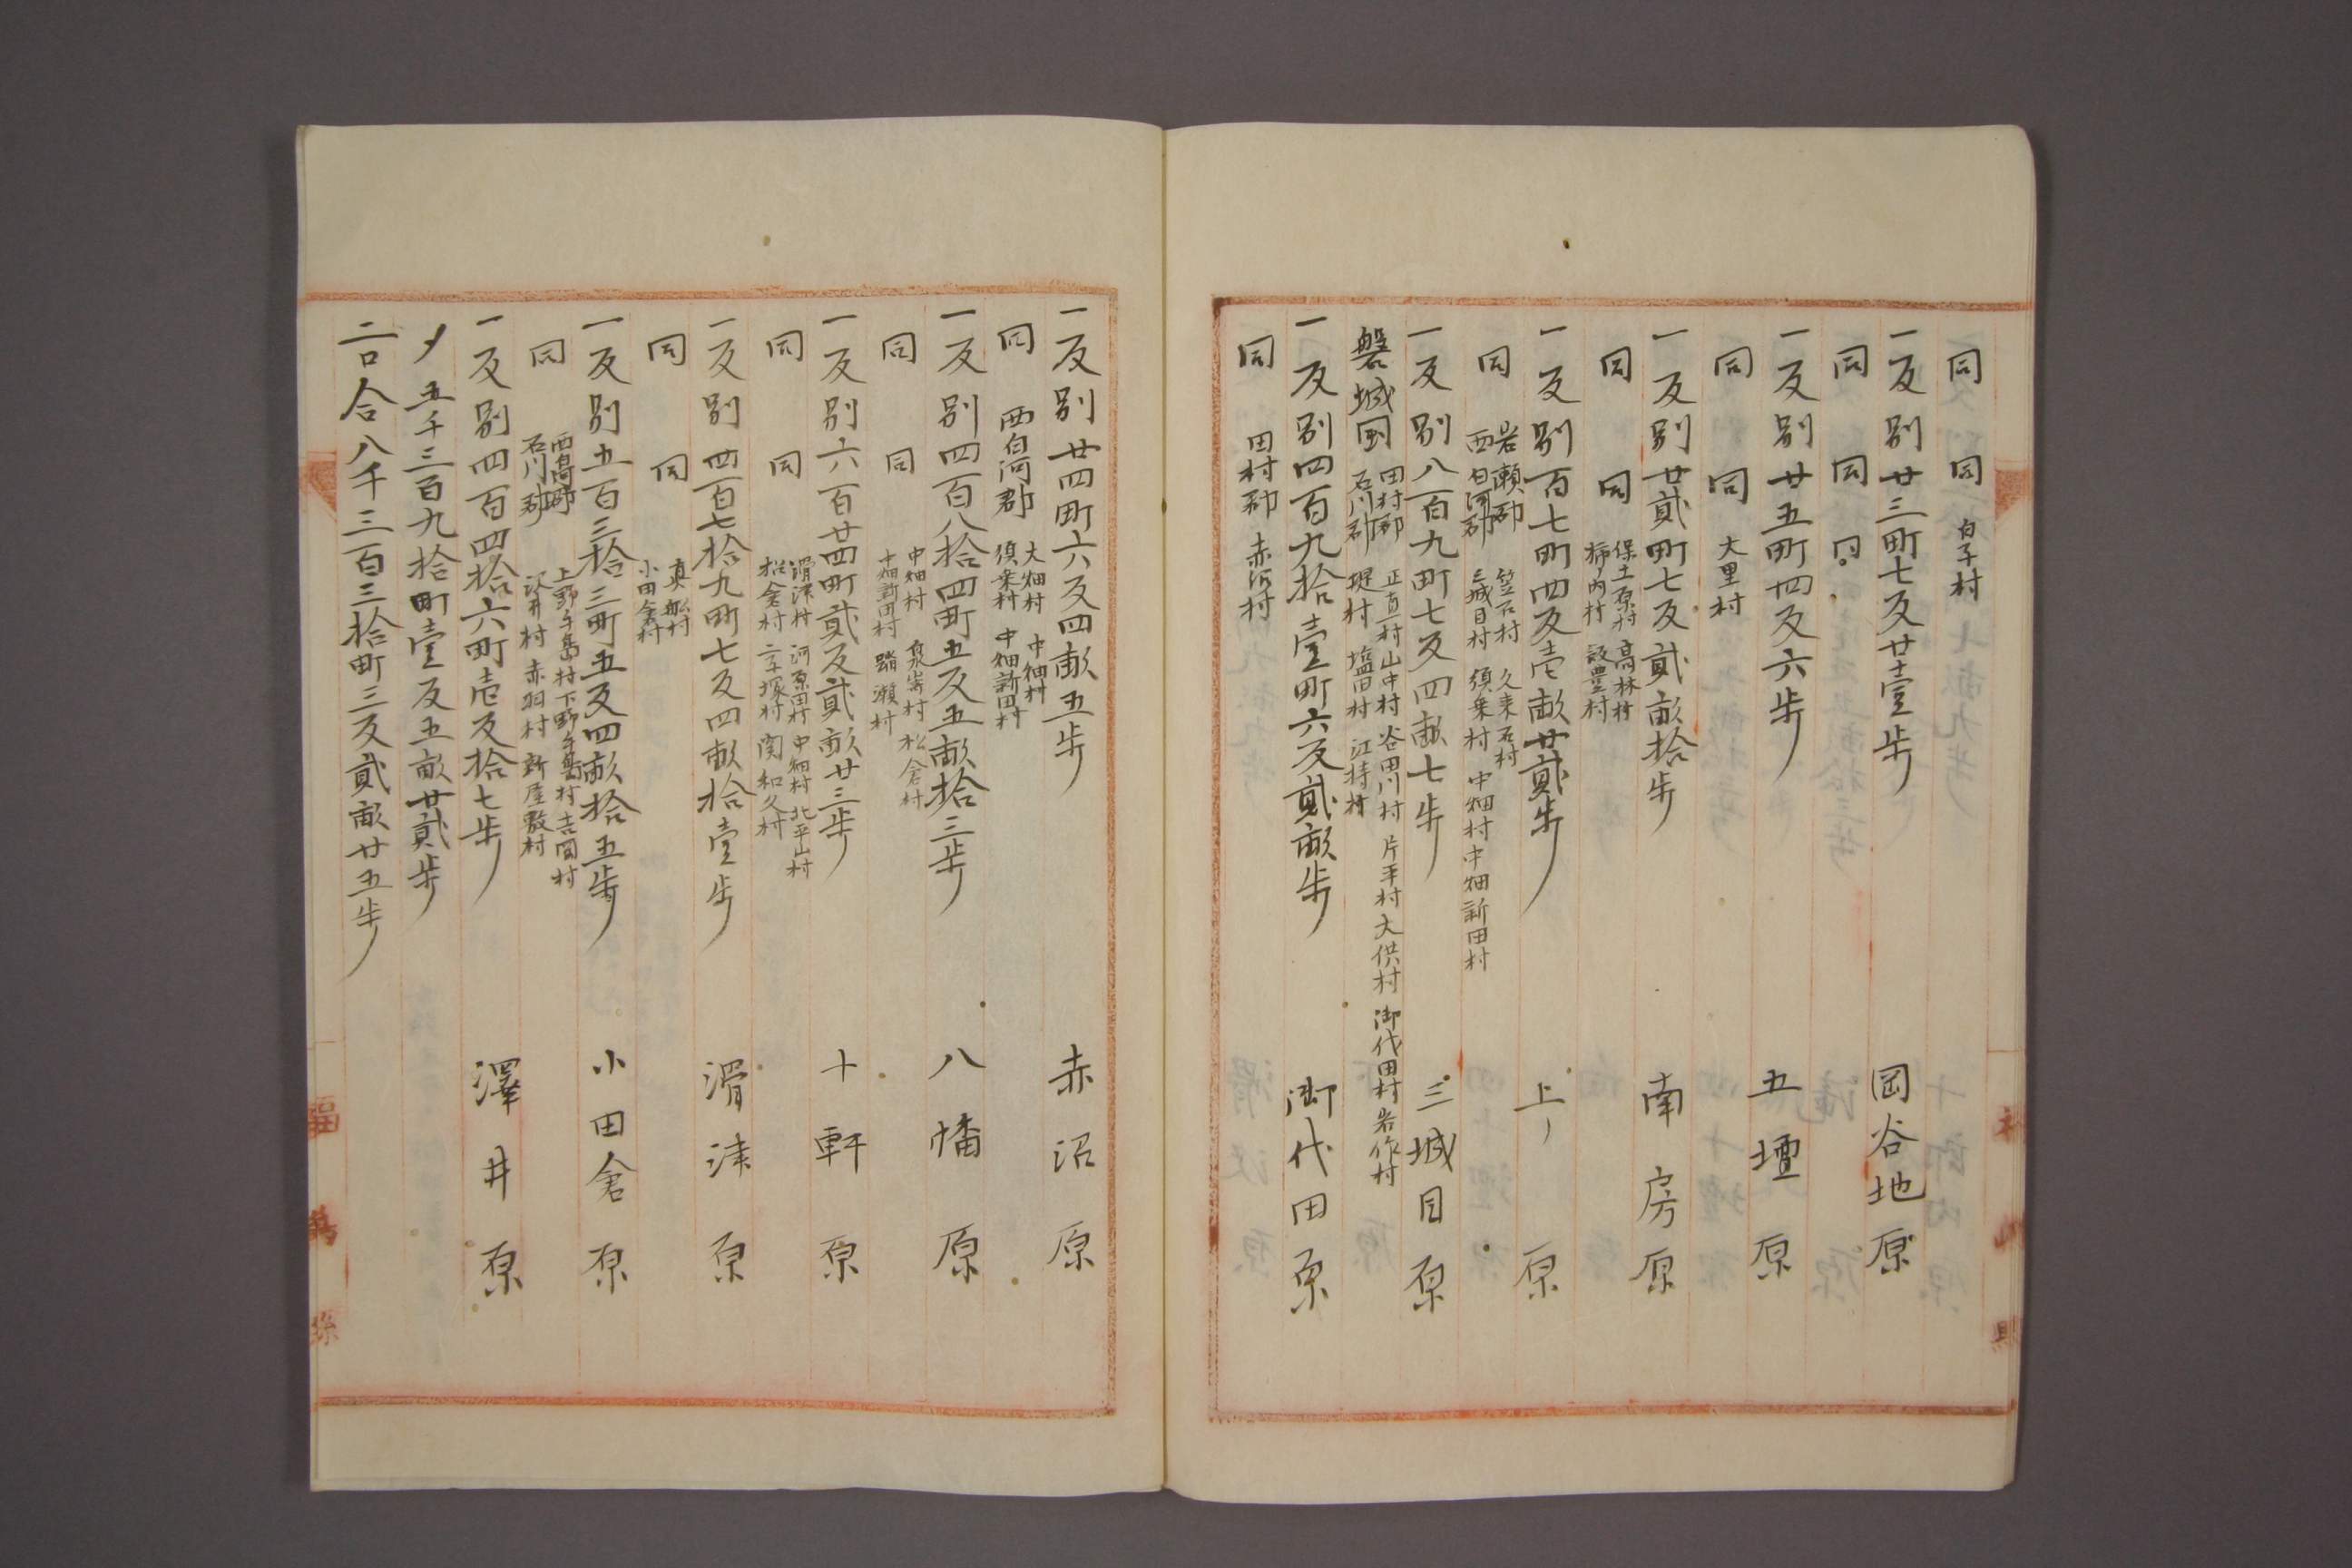 同 同 白子村
一反別廿三町七反廿壹歩 岡谷地原
同 同 同
一反別廿五町四反六歩 五壇原
同 同 大里村
一反別廿貳町七反貳畝拾歩 南房原
同 同 保土原村 高林村
柿ノ内村
一反別百七町四反壱畝廿貳歩 上ノ原
同 岩瀬郡 笠石村 久来石村
西白河郡 三城目村 須乗村 中畑村 中畑新田村
一反別八百九町七反四畝七歩 三城目原
磐城国 田村郡 正直村 山中村 谷田川村 片平村 大供村 御代田村 岩作村
石川郡 堤村 塩田村 江持村
一反別四百九拾壹町六反貳畝歩 御代田原
同 田村郡 赤沼村
一反別廿四町六反四畝五歩 赤沼原
同 西白河郡 大畑村 中畑村
須乗村 中畑新田村
一反別四百八拾四町五反五畝拾三歩 八幡原
同 同 中畑村 泉崎村 松倉村
十畑新田村 踏瀬村
一反別六百廿四町貳反貳畝廿三歩 十軒原
同 同 滑津村 河原田村 中畑村 北平山村
松倉村 二子塚村 関和久村
一反別四百七拾九町七反四畝拾壹歩 滑津原
同 同 真船村
小田倉村
一反別五百三拾三町五反四畝拾五歩 小田倉原
同 西白河郡 上野手島村 下野手島村 吉岡村
石川郡 沢井村 赤羽村 新屋敷村
一反別四百四拾六町壱反拾七歩 澤井原
〆五千三百九拾町壹反五畝廿貳歩
二口合八千三百三拾町三反貳畝廿五歩
福島縣